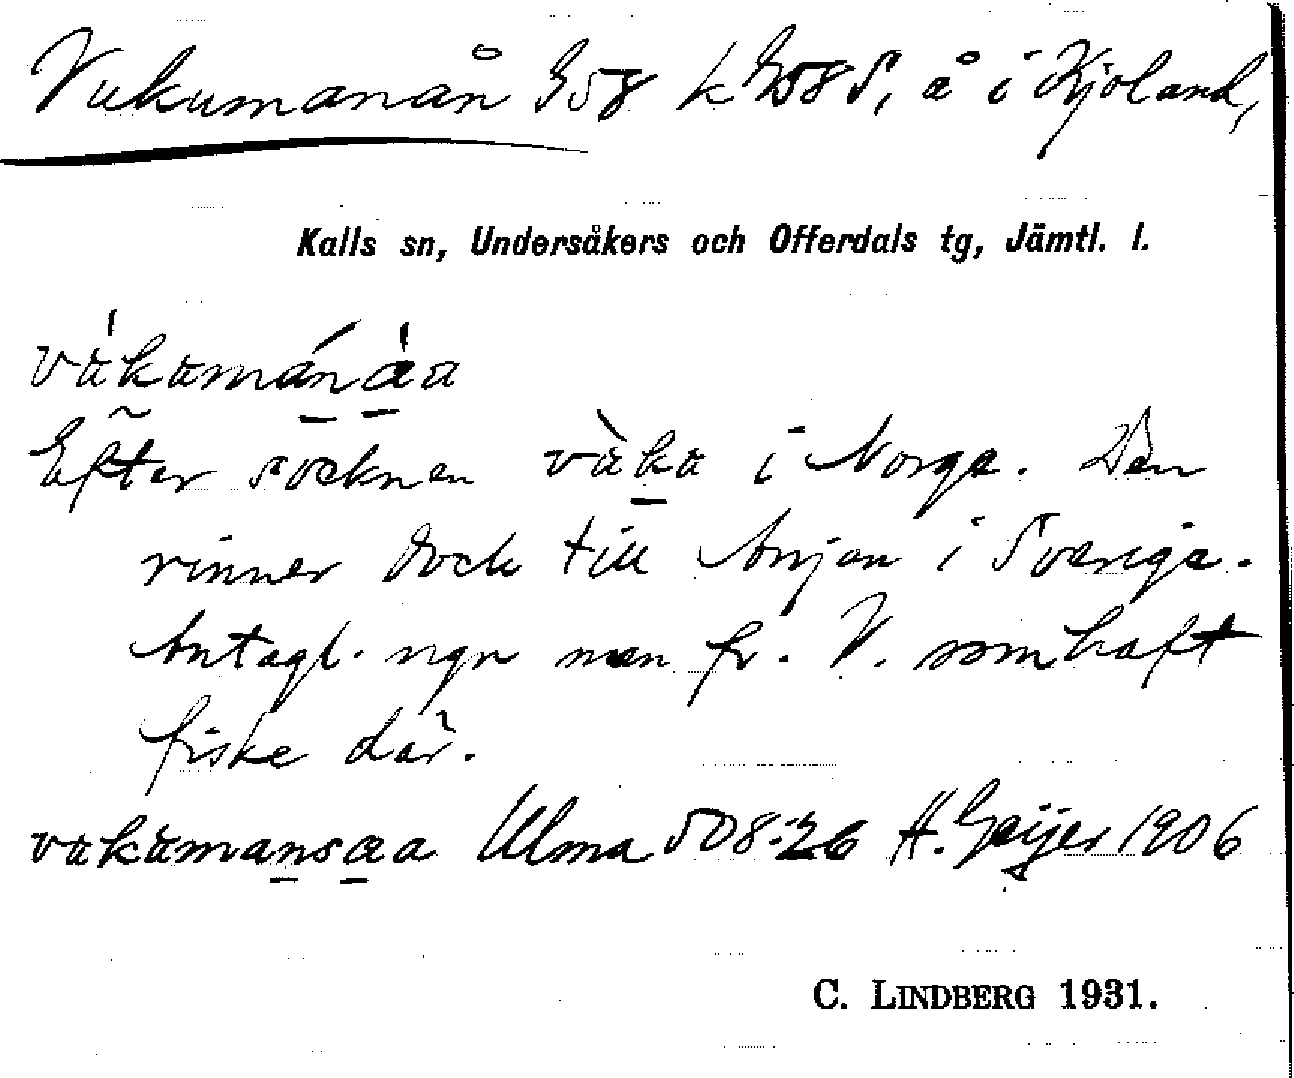 Vukumanån G58 k G58 S, å i Kjoland,
Kalls sn, Undersåkers och Offerdals tg, Jämtl. l.
Efter socknen i Norge. Den
rinner dock till Anjan i Sverige.
Antagl. ngn man fr. V. som haft
fiske där.
Ulma 508:26 H. Geijer 1906
C. LINDBERG 1931.